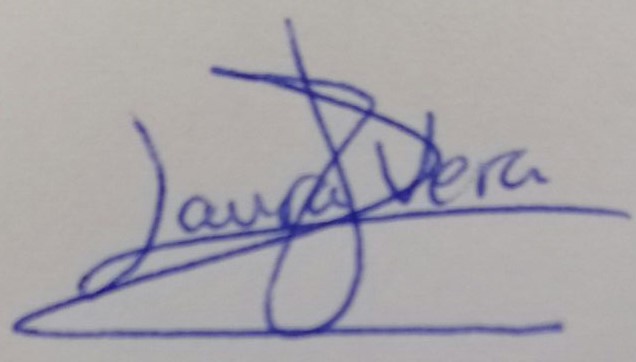 Laura Vera